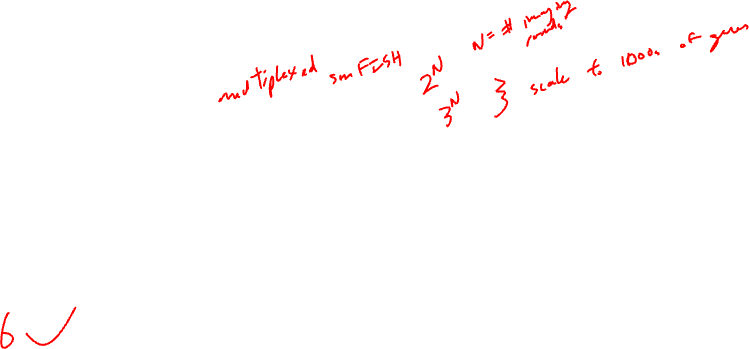 multiplexed smFISH 2^N N = # imaging rounds
3^N } scale to 1000s of genes
6 ✓